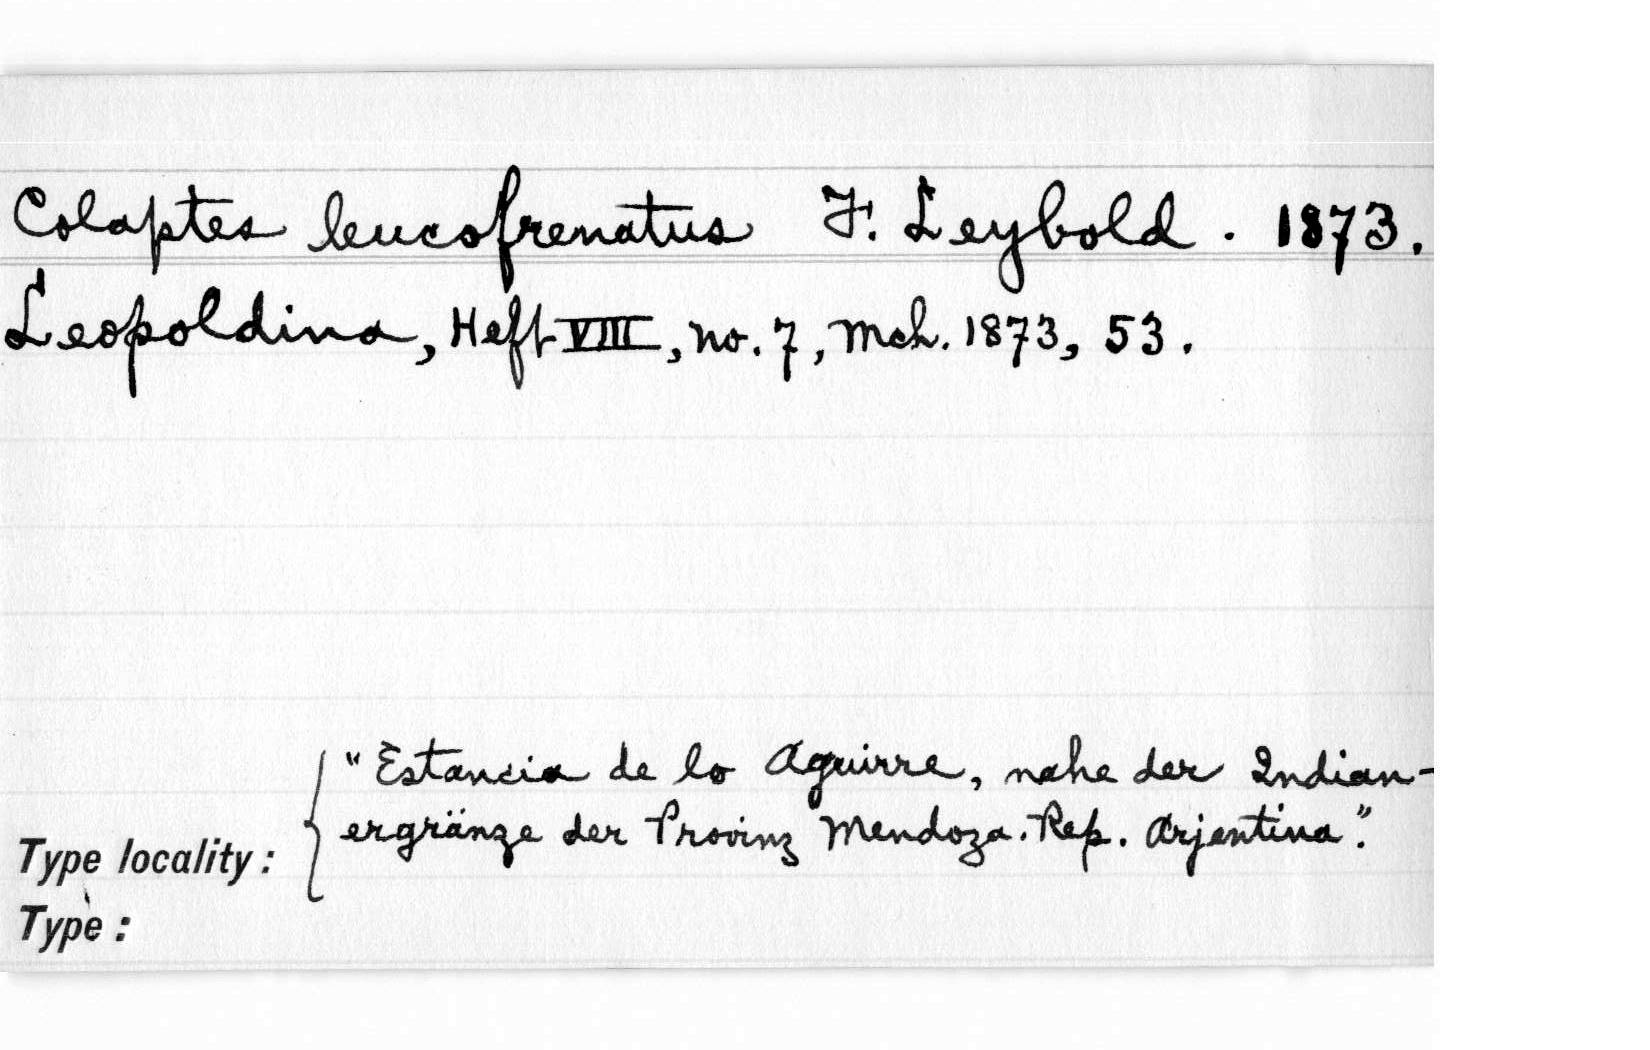 Colaptes leucofrenatus F. Leybold. 1873.
Leopoldina, Heft VIII, no. 7, Mch. 1873, 53.
"Estancia de lo Aguirre, nahe der Indian-
ergränze der Provinz Mendoza. Rep. Arjentina".
Type locality:
Type: